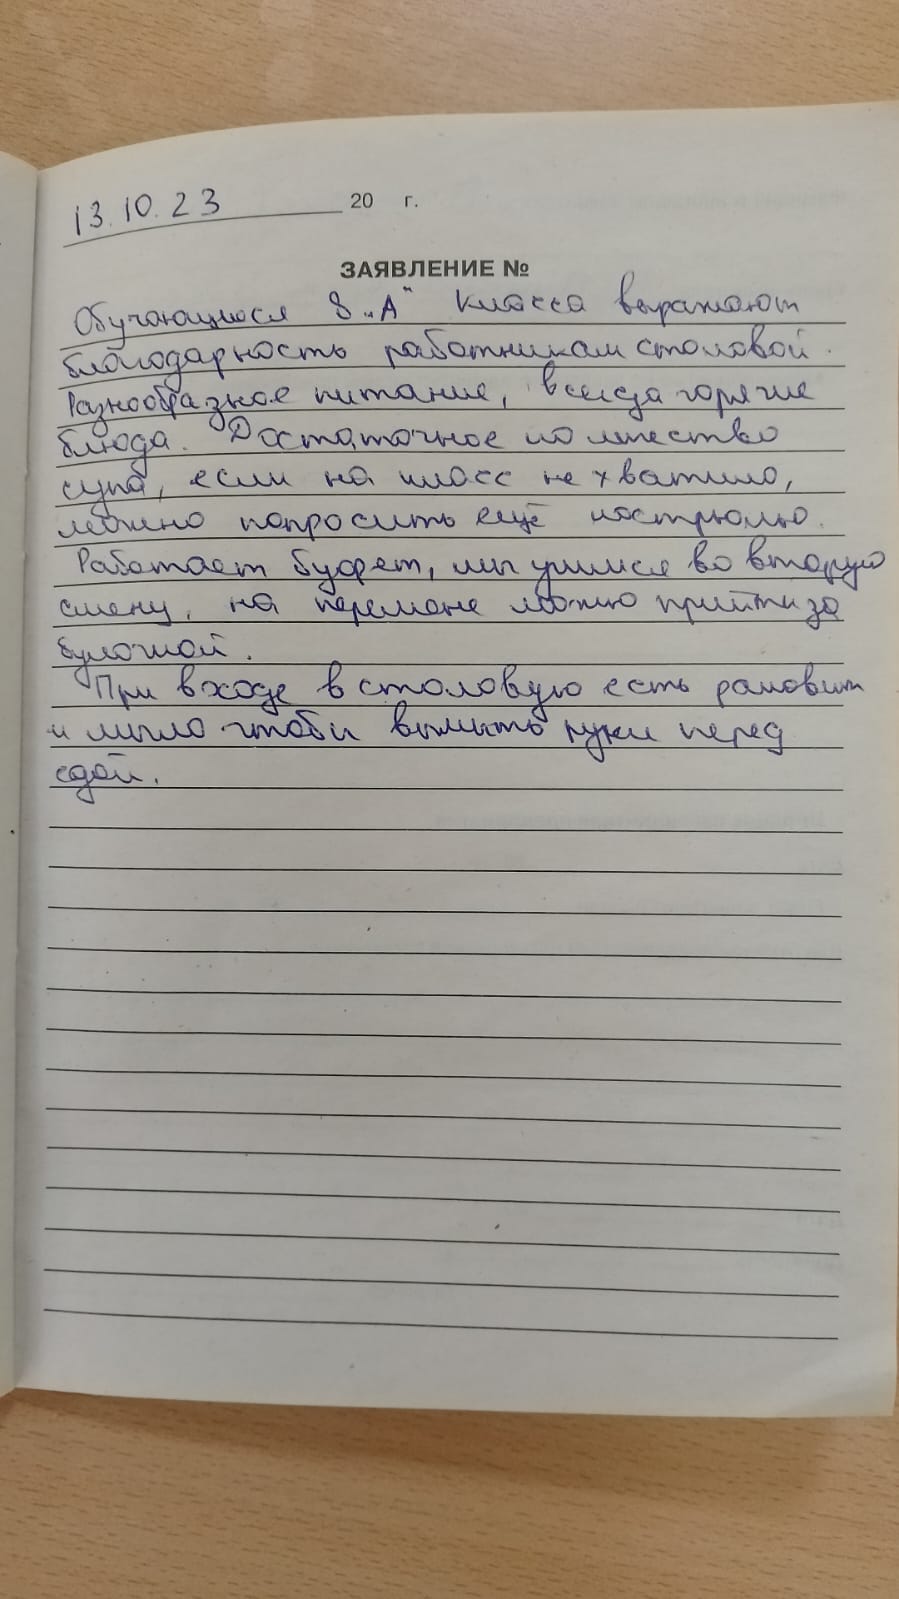 13.10.23 20 г.
ЗАЯВЛЕНИЕ №
Обучающиеся 8 „А" класса выражают
благодарность работникам столовой.
Разнообразное питание, всегда горячие
блюда. Достаточное количество
супа, если на класс не хватило,
можно попросить ещё кастрюлю.
Работает буфет, мы учимся во вторую
смену, на перемене можно прийти за
булочкой.
При входе в столовую есть раковины
и мыло чтобы вымыть руки перед
едой.